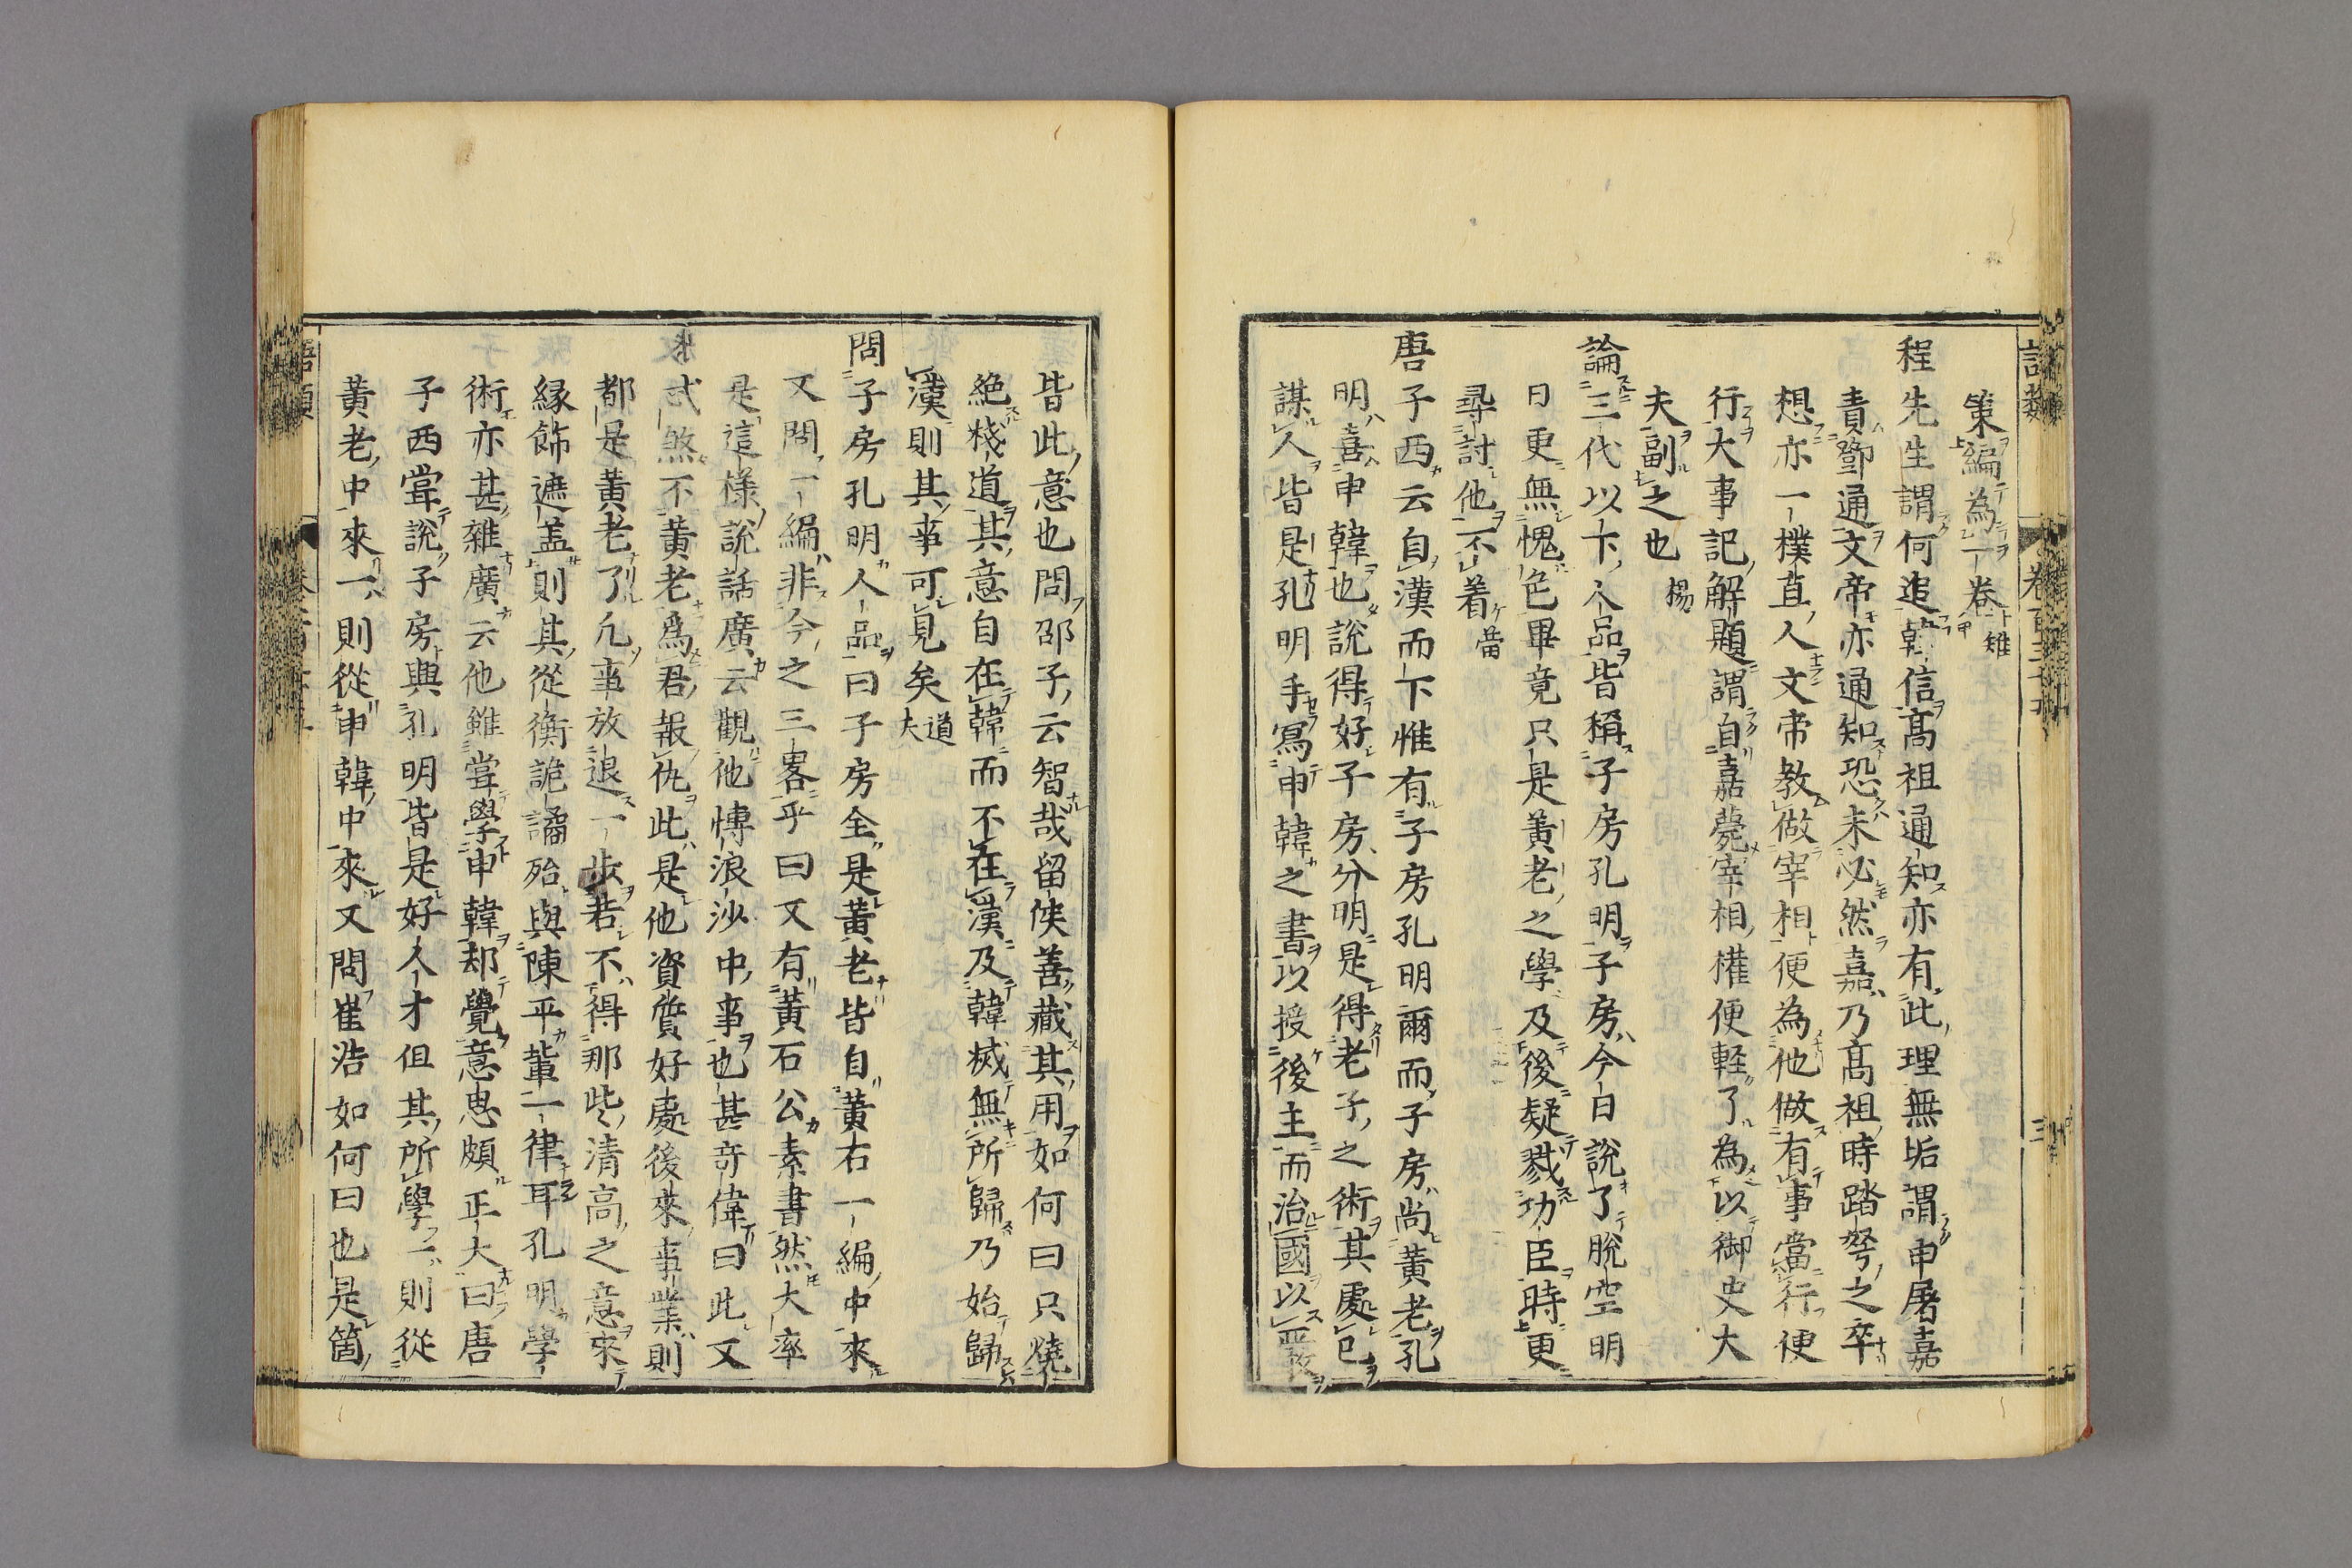 策編為一卷雉
程先生謂何追韓信高祖通知亦有此理無垢謂申屠嘉
責鄧通文帝亦通知恐未必然嘉乃高祖時踏弩之卒
想亦一樸直人文帝教做宰相便為他做有事當行便
行大事記解題謂自嘉薨宰相權便軽了為以御史大
夫副之也楊
論三代以下人品皆稱子房孔明子房今日說了脫空明
日更無愧色畢竟只是黃老之學及後疑戮功臣時更
尋討他不着㽞
唐子西云自漢而下惟有子房孔明爾而子房尚黃老孔
明喜申韓也說得好子房分明是得老子之術其處已
謀人皆是孔明手寫申韓之書以授後主而治國以嚴
皆此意也問邵子云智哉留侯善藏其用如何曰只燒
絶棧道其意自在韓而不在漢及韓滅無所歸乃始歸
漢則其事可見矣道夫
問子房孔明人品曰子房全是黃老皆自黃石一編中來
又問一編非今之三畧乎曰又有黃石公素書然大率
是這様說話廣云觀他慱浪沙中事也甚竒偉曰此又
忒煞不黃老為君報仇此是他資質好處後來事業則
都是黃老了凢事放退一歩若不得那些清高之意來
縁飾遮盖則其從衡詭譎殆與陳平輩一律耳孔明學
術亦甚雜廣云他雖甞學申韓却覺意思頗正大曰唐
子西甞說子房與孔明皆是好人才但其所學一則從
黃老中來一則從申韓中來又問崔浩如何曰也是箇